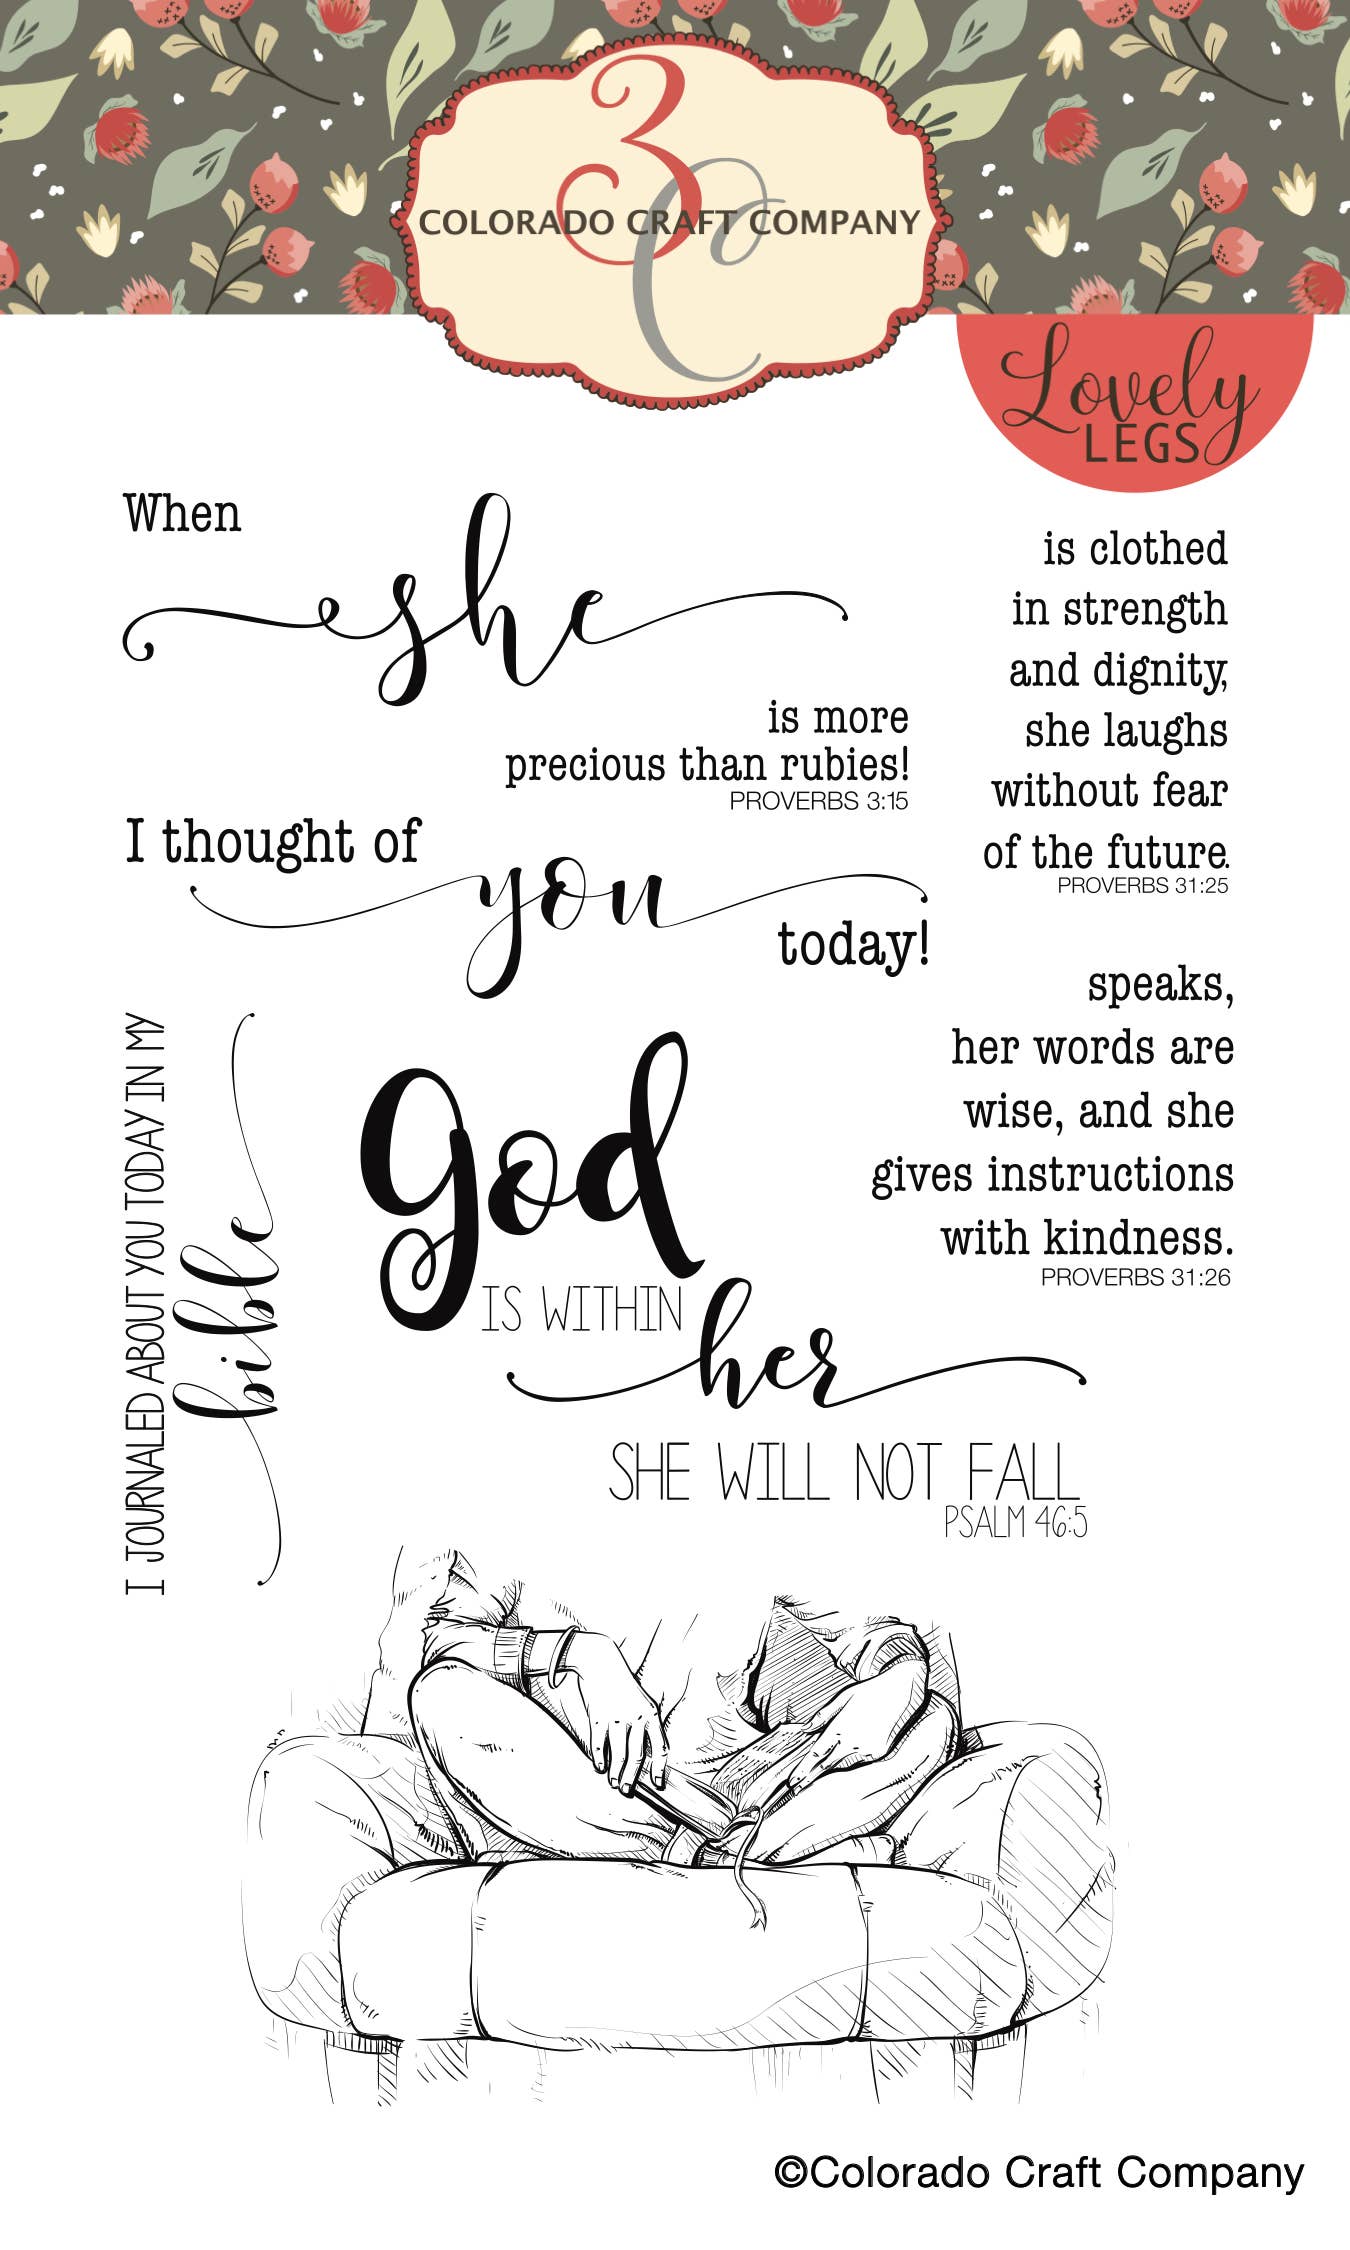 3C
COLORADO CRAFT COMPANY
Lovely
LEGS
When
she
is more
precious than rubies!
PROVERBS 3:15
is clothed
in strength
and dignity,
she laughs
without fear
of the future.
PROVERBS 31:25
I thought of
you
today!
speaks,
her words are
wise, and she
gives instructions
with kindness.
PROVERBS 31:26
I JOURNALED ABOUT YOU TODAY IN MY
bible
god
IS WITHIN
her
SHE WILL NOT FALL
PSALM 46:5
©Colorado Craft Company